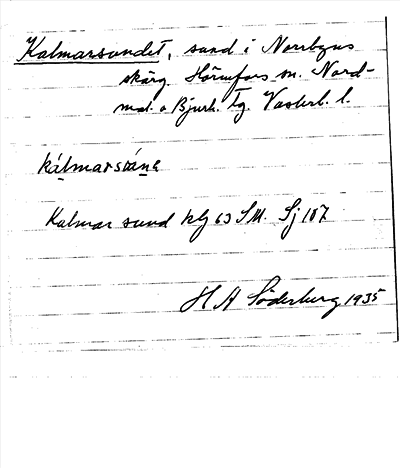 Kalmarsundet, sund i Norrbyns
skärg. Hörnefors sn. Nord-
mal. o Bjurh. tg. Västerb. l.
Kalmar sund klj 63 SM. Sj 107
H A Söderberg 1935